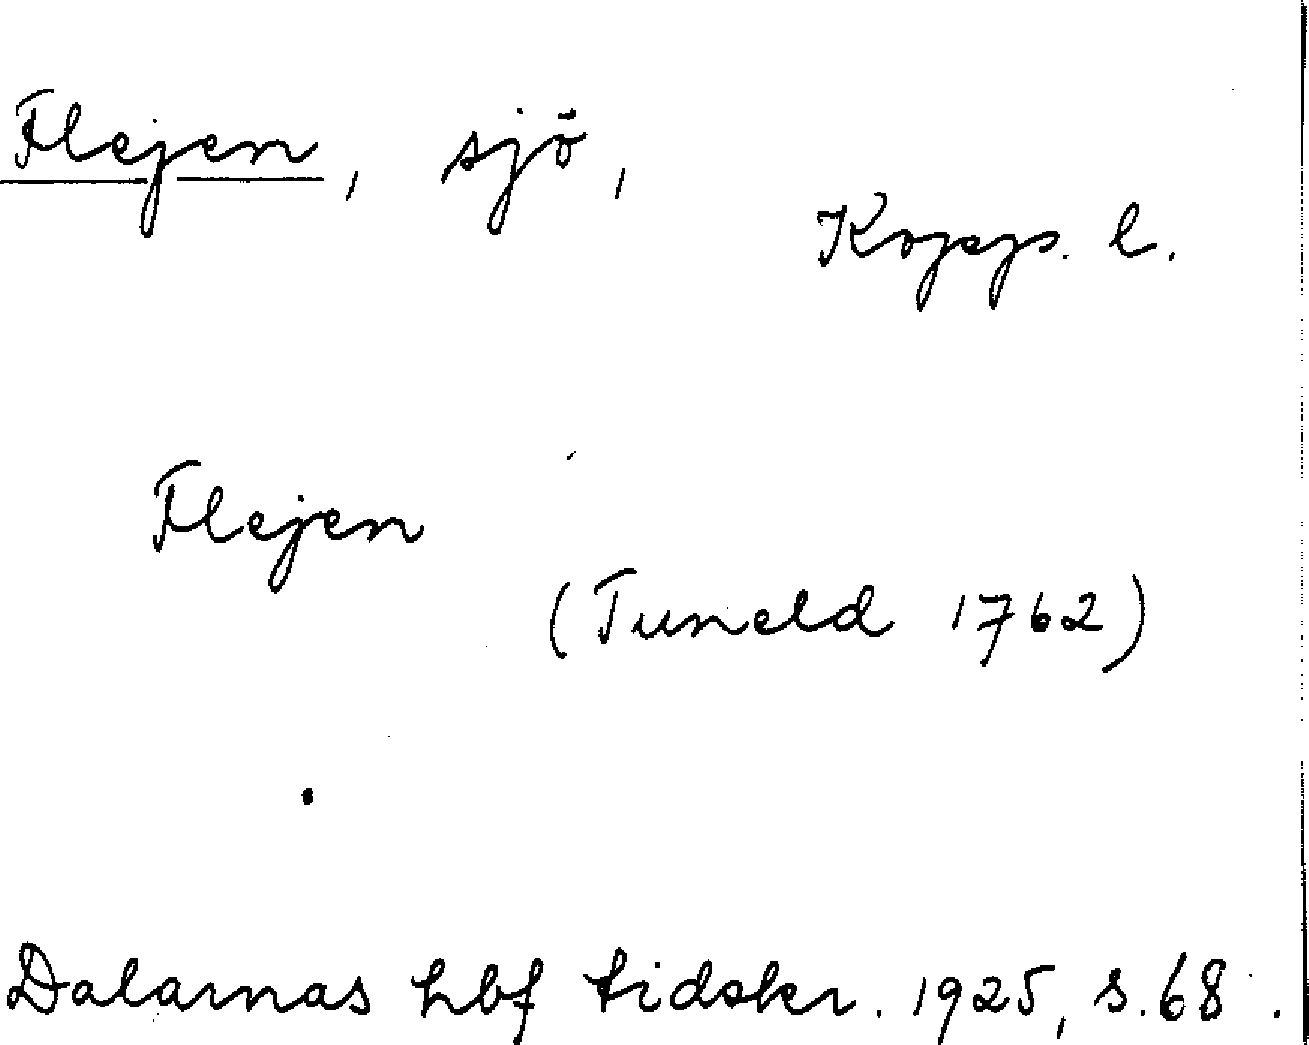 Flejen, sjö,
Kopp. l.
Flejen
(Tuneld 1762)
Dalarnas hbf tidskr. 1925, s. 68.